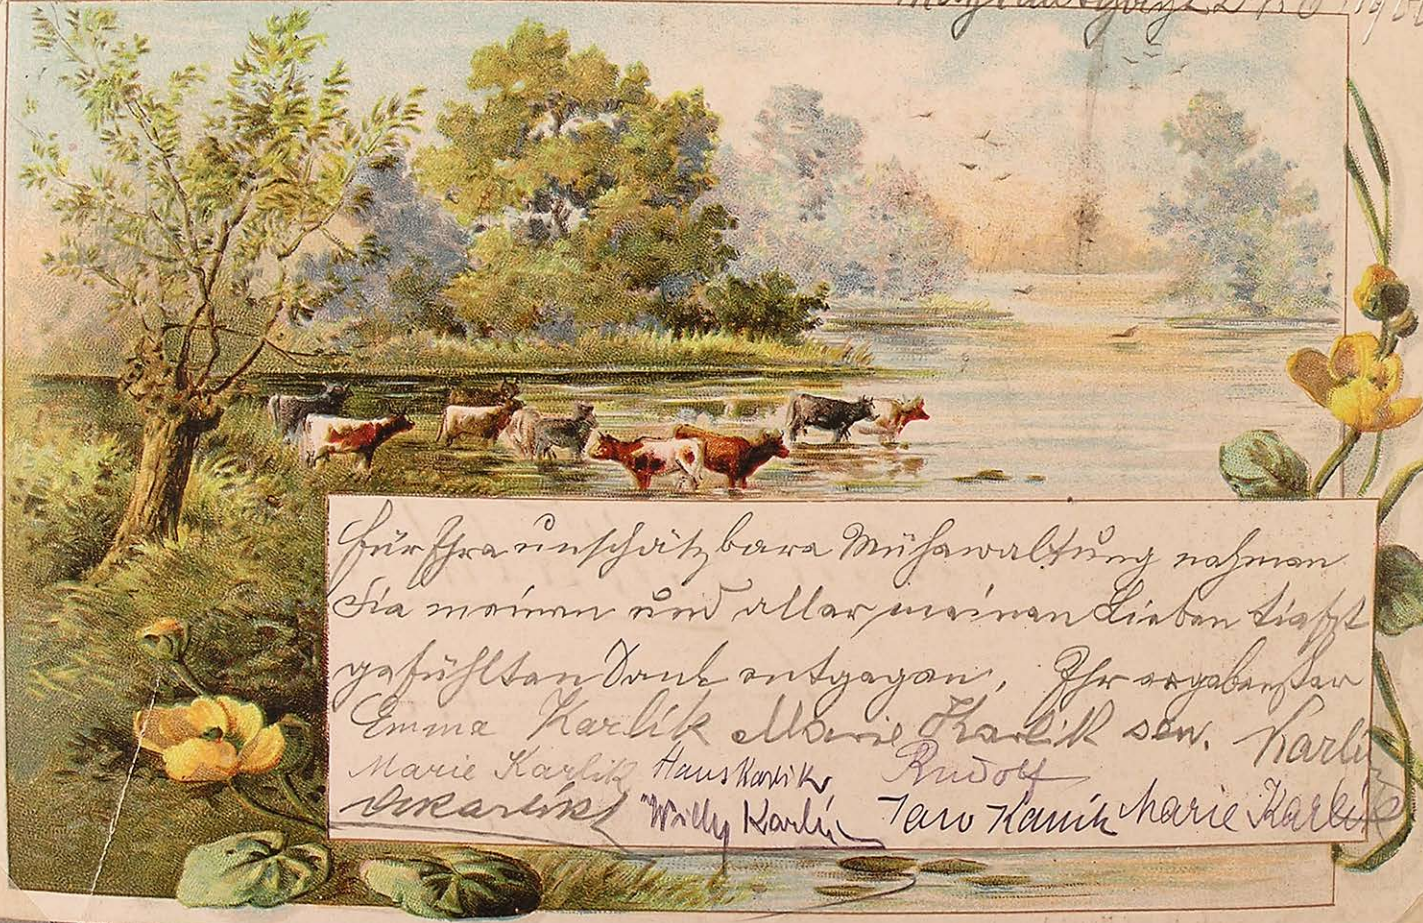 Für Ihre unschätzbare Mühewaltung nehmen
Sie meinen und aller meinen Lieben tiefst
gefühlten Dank entgegen. Ihr ergebenster
Emma Karlik Marie Karlik sen. Karlik
Marie Karlik Hans Karlik Rudolf
Karlik Willy Karlik Marie Karlik